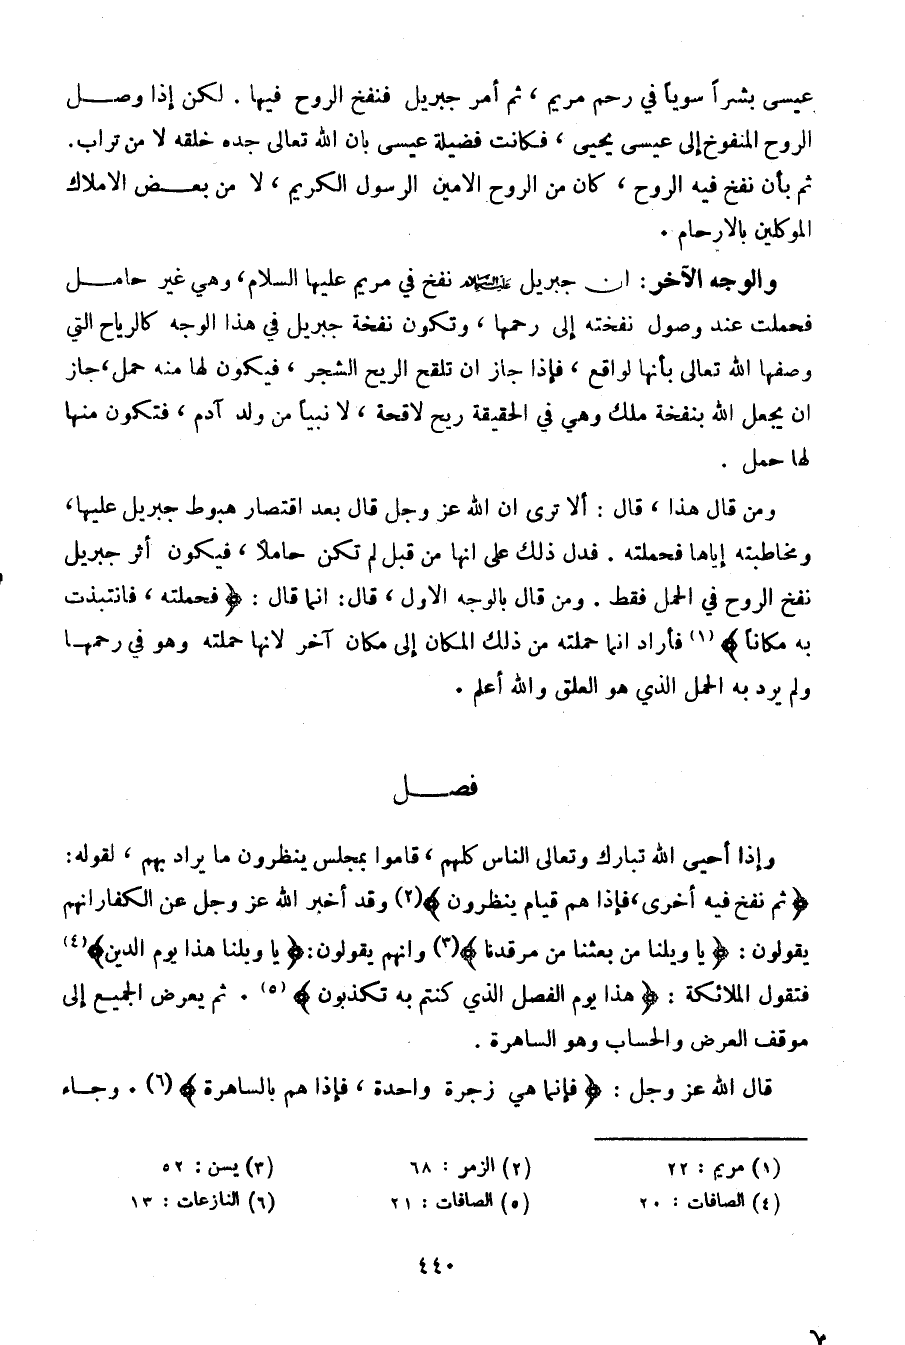 عيسى بشراً سوياً في رحم مريم ، ثم أمر جبريل فنفخ الروح فيها . لكن إذا وصل
الروح المنفوخ إلى عيسى يحيى ، فكانت فضيلة عيسى بان الله تعالى جده خلقه لا من تراب.
ثم بأن نفخ فيه الروح ، كان من الروح الامين الرسول الكريم ، لا من بعض الاملاك
الموكلين بالارحام .
والوجه الآخر : ان جبريل عليه السلام نفخ في مريم عليها السلام، وهي غير حامل
فحملت عند وصول نفخته إلى رحمها ، وتكون نفخة جبريل في هذا الوجه كالرياح التي
وصفها الله تعالى بأنها لواقع ، فإذا جاز ان تلقح الريح الشجر ، فيكون لها منه حمل، جاز
ان يجعل الله بنفخة ملك وهي في الحقيقة ريح لاقحة ، لا نبياً من ولد آدم ، فتكون منها
لها حمل .
ومن قال هذا ، قال : ألا ترى ان الله عز وجل قال بعد اقتصار هبوط جبريل عليها،
ومخاطبته إياها فحملته . فدل ذلك على انها من قبل لم تكن حاملاً ، فيكون أثر جبريل
نفخ الروح في الحمل فقط . ومن قال بالوجه الاول ، قال: انما قال : ﴿ فحملته ، فانتبذت
به مكاناً ﴾ (١) فأراد انما حملته من ذلك المكان إلى مكان آخر لانها حملته وهو في رحمها
ولم يرد به الحمل الذي هو العلق والله أعلم .
فصل
وإذا أحيى الله تبارك وتعالى الناس كلهم ، قاموا بمجلس ينظرون ما يراد بهم ، لقوله:
﴿ ثم نفخ فيه أخرى، فإذا هم قيام ينظرون ﴾(٢) وقد أخبر الله عز وجل عن الكفار انهم
يقولون : ﴿ يا ويلنا من بعثنا من مرقدنا ﴾(٣) وانهم يقولون: ﴿ يا ويلنا هذا يوم الدين﴾(٤)
فتقول الملائكة : ﴿ هذا يوم الفصل الذي كنتم به تكذبون ﴾ (٥) . ثم يعرض الجميع إلى
موقف العرض والحساب وهو الساهرة .
قال الله عز وجل : ﴿ فإنما هي زجرة واحدة ، فإذا هم بالساهرة ﴾ (٦) . وجاء
(١) مريم : ٢٢ (٢) الزمر : ٦٨ (٣) يسن : ٥٢
(٤) الصافات : ٢٠ (٥) الصافات : ٢١ (٦) النازعات : ١٣
٤٤٠